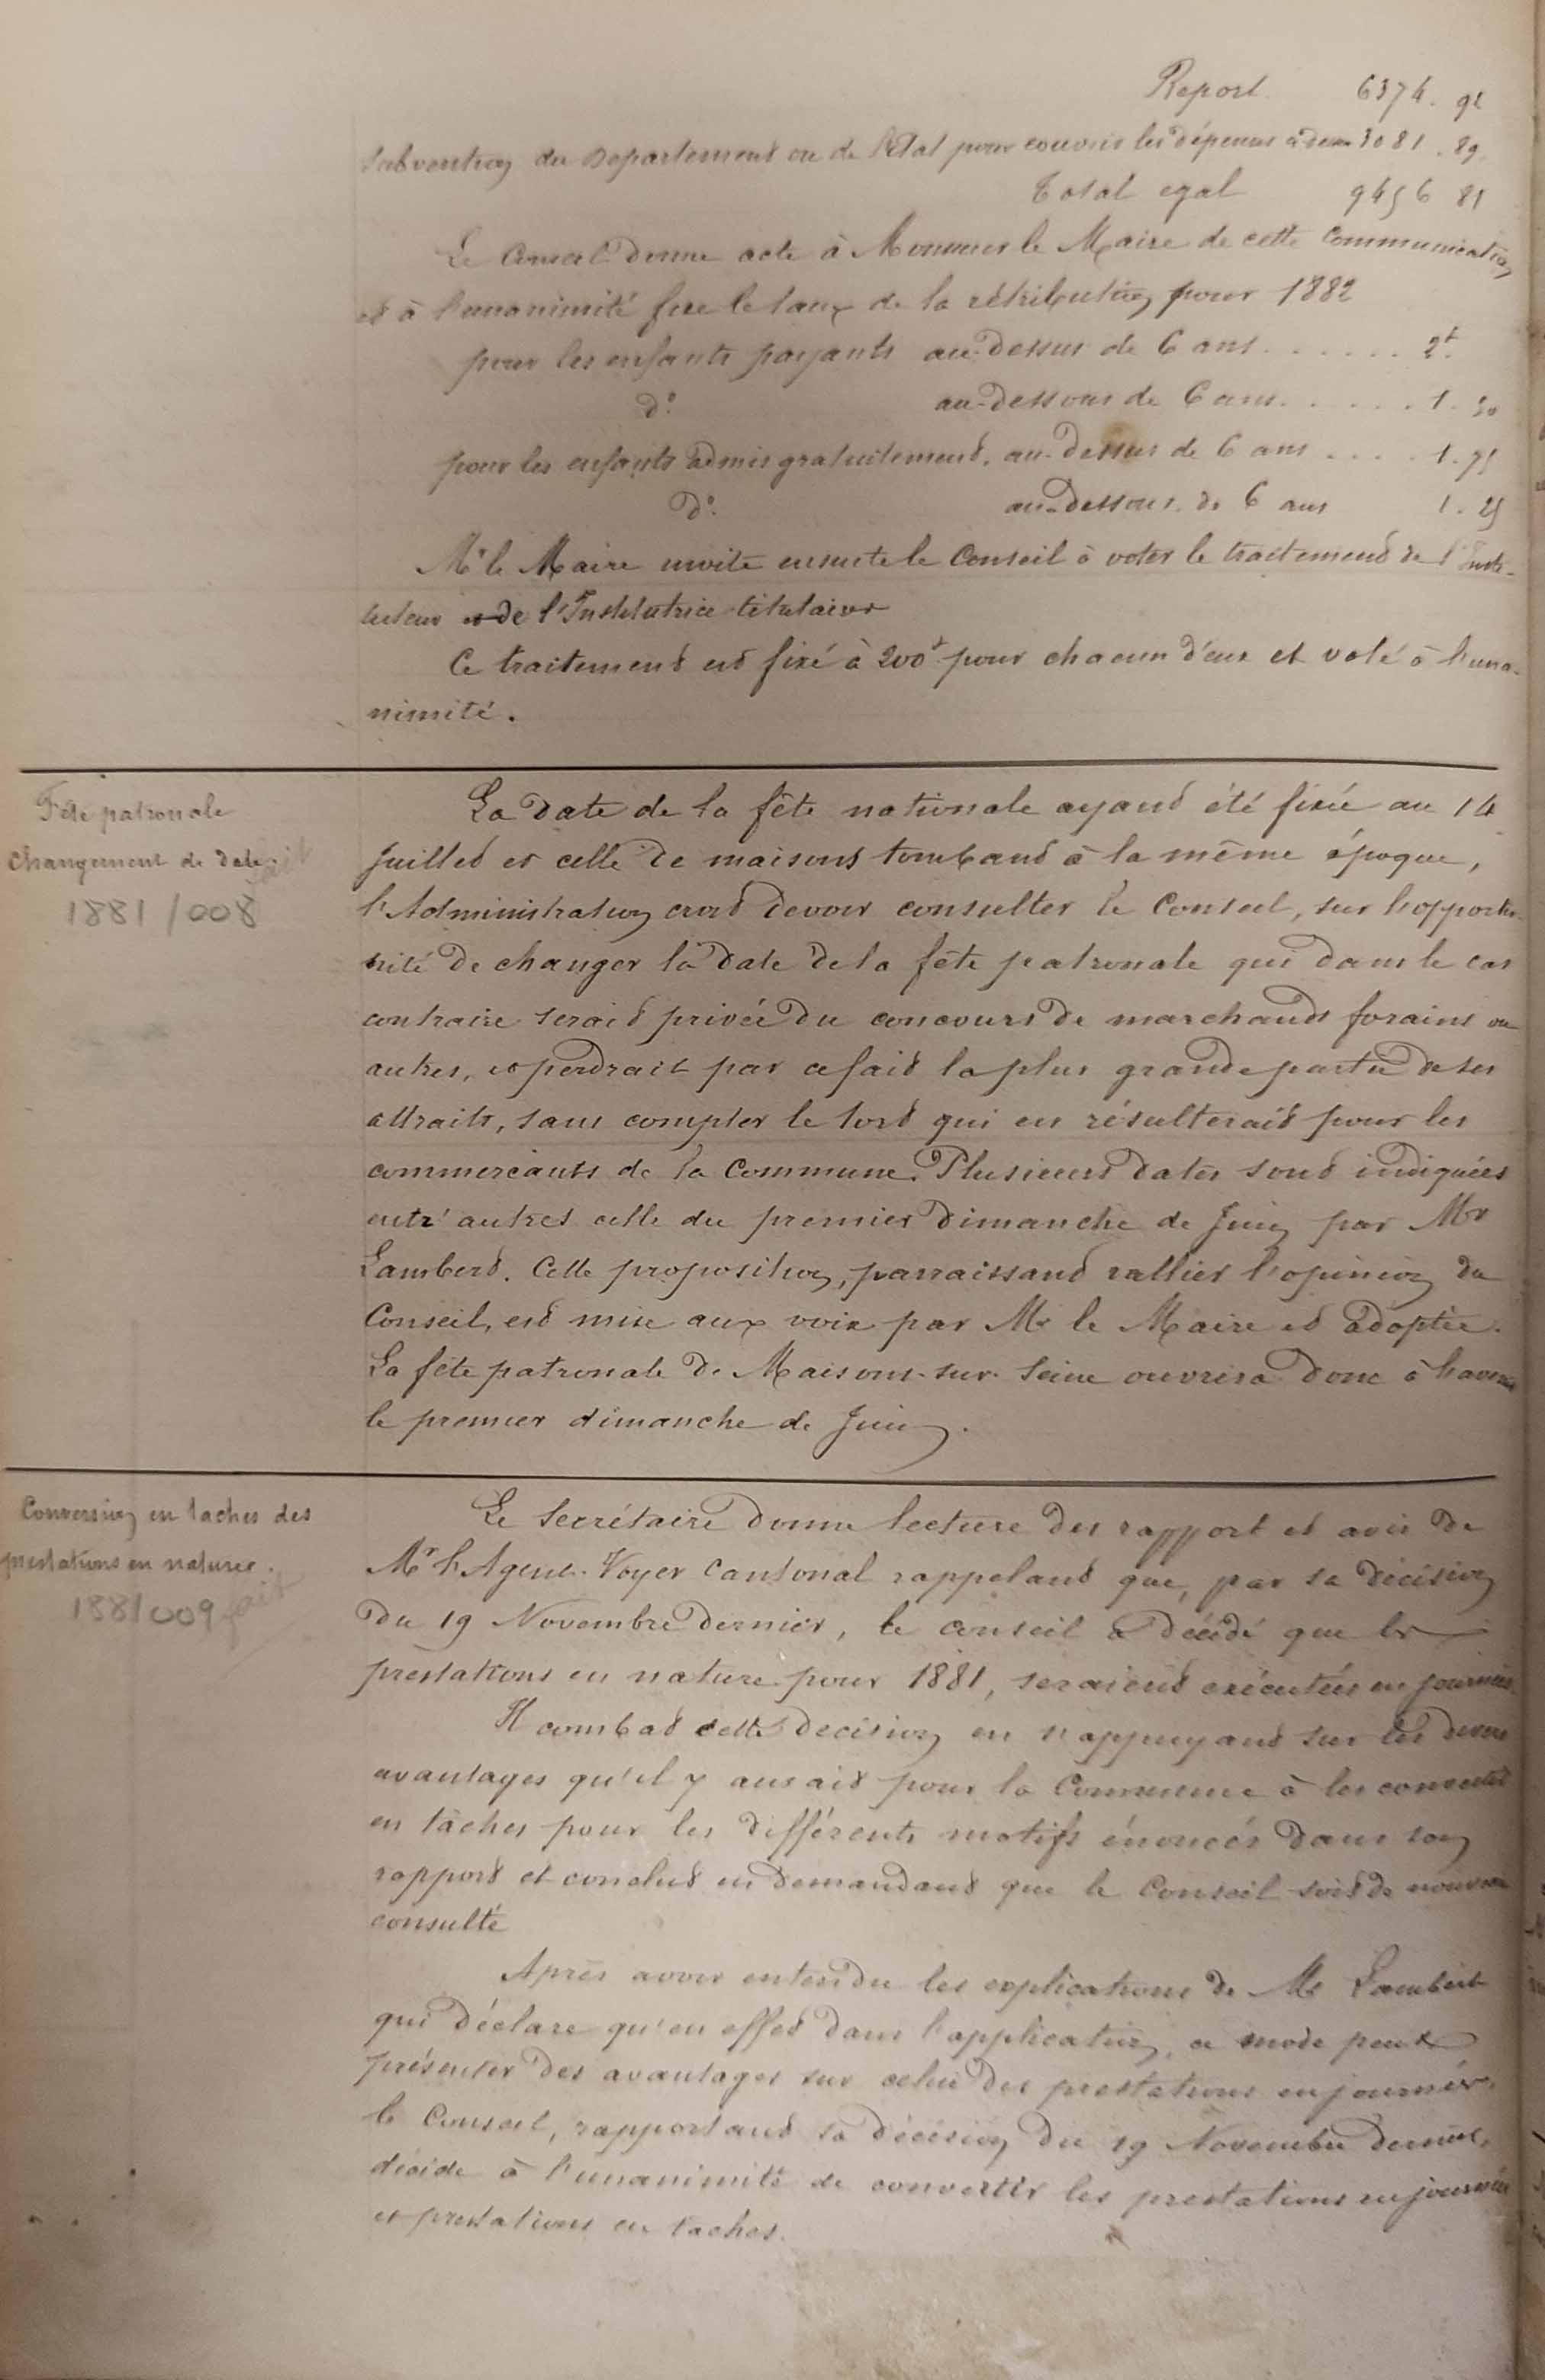 Report 6374. 92
Subvention du Departement ou de l'Etat pour couvrir les dépenses 3081. 89
Total egal 9456 81
Le Conseil donne acte à Monsieur le Maire de cette Communication
et à l'unanimité fixe le taux de la rétribution pour 1882
pour les enfants payants au-dessus de 6 ans . . . . . . 2f.
d° au-dessous de 6 ans . . . . . . 1. 50
pour les enfants admis gratuitement, au-dessus de 6 ans . . . . 1. 75
d° au-dessous de 6 ans 1. 25
Mr le Maire invite ensuite le Conseil à voter le traitement de l'Insti-
tuteur et de l'Institutrice titulaires
Ce traitement est fixé à 200f pour chacun d'eux et voté à l'una-
nimité.
Fête patronale
Changement de date
fait
1881/008
La date de la fête nationale ayant été fixée au 14
Juillet et celle de maisons tombant à la même époque,
l'Administration croit devoir consulter le Conseil, sur l'opportu-
nité de changer la date de la fête patronale qui dans le cas
contraire serait privée du concours de marchands forains ou
autres, et perdrait par ce fait la plus grande partie de ses
attraits, sans compter le tort qui en résulterait pour les
commerçants de la Commune. Plusieurs dates sont indiquées
entr'autres celle du premier Dimanche de Juin par Mr
Lambert. Cette proposition, parraissant rallier l'opinion du
Conseil, est mise aux voix par Mr le Maire et adoptée.
La fête patronale de Maisons-sur-Seine ouvrira donc à l'avenir
le premier dimanche de Juin.
Conversion en taches des
prestations en natures.
1881009 fait
Le Secrétaire donne lecture des rapport et avis de
Mr l'Agent-Voyer Cantonal rappelant que, par sa décision
du 19 Novembre dernier, le conseil a décidé que les
prestations en nature pour 1881, seraient exécutées en journées.
Il combat cette decision en s'appuyant sur les divers
avantages qu'il y aurait pour la Commune à les convertir
en tâches pour les différents motifs énoncés dans son
rapport et conclut en demandant que le Conseil soit de nouveau
consulté
Après avoir entendu les explications de Mr Lambert
qui déclare qu'en effet dans l'application, ce mode peut
présenter des avantages sur celui des prestations en journées,
le Conseil, rapportant sa décision du 19 Novembre dernier,
décide à l'unanimité de convertir les prestations en journées
et prestations en taches.